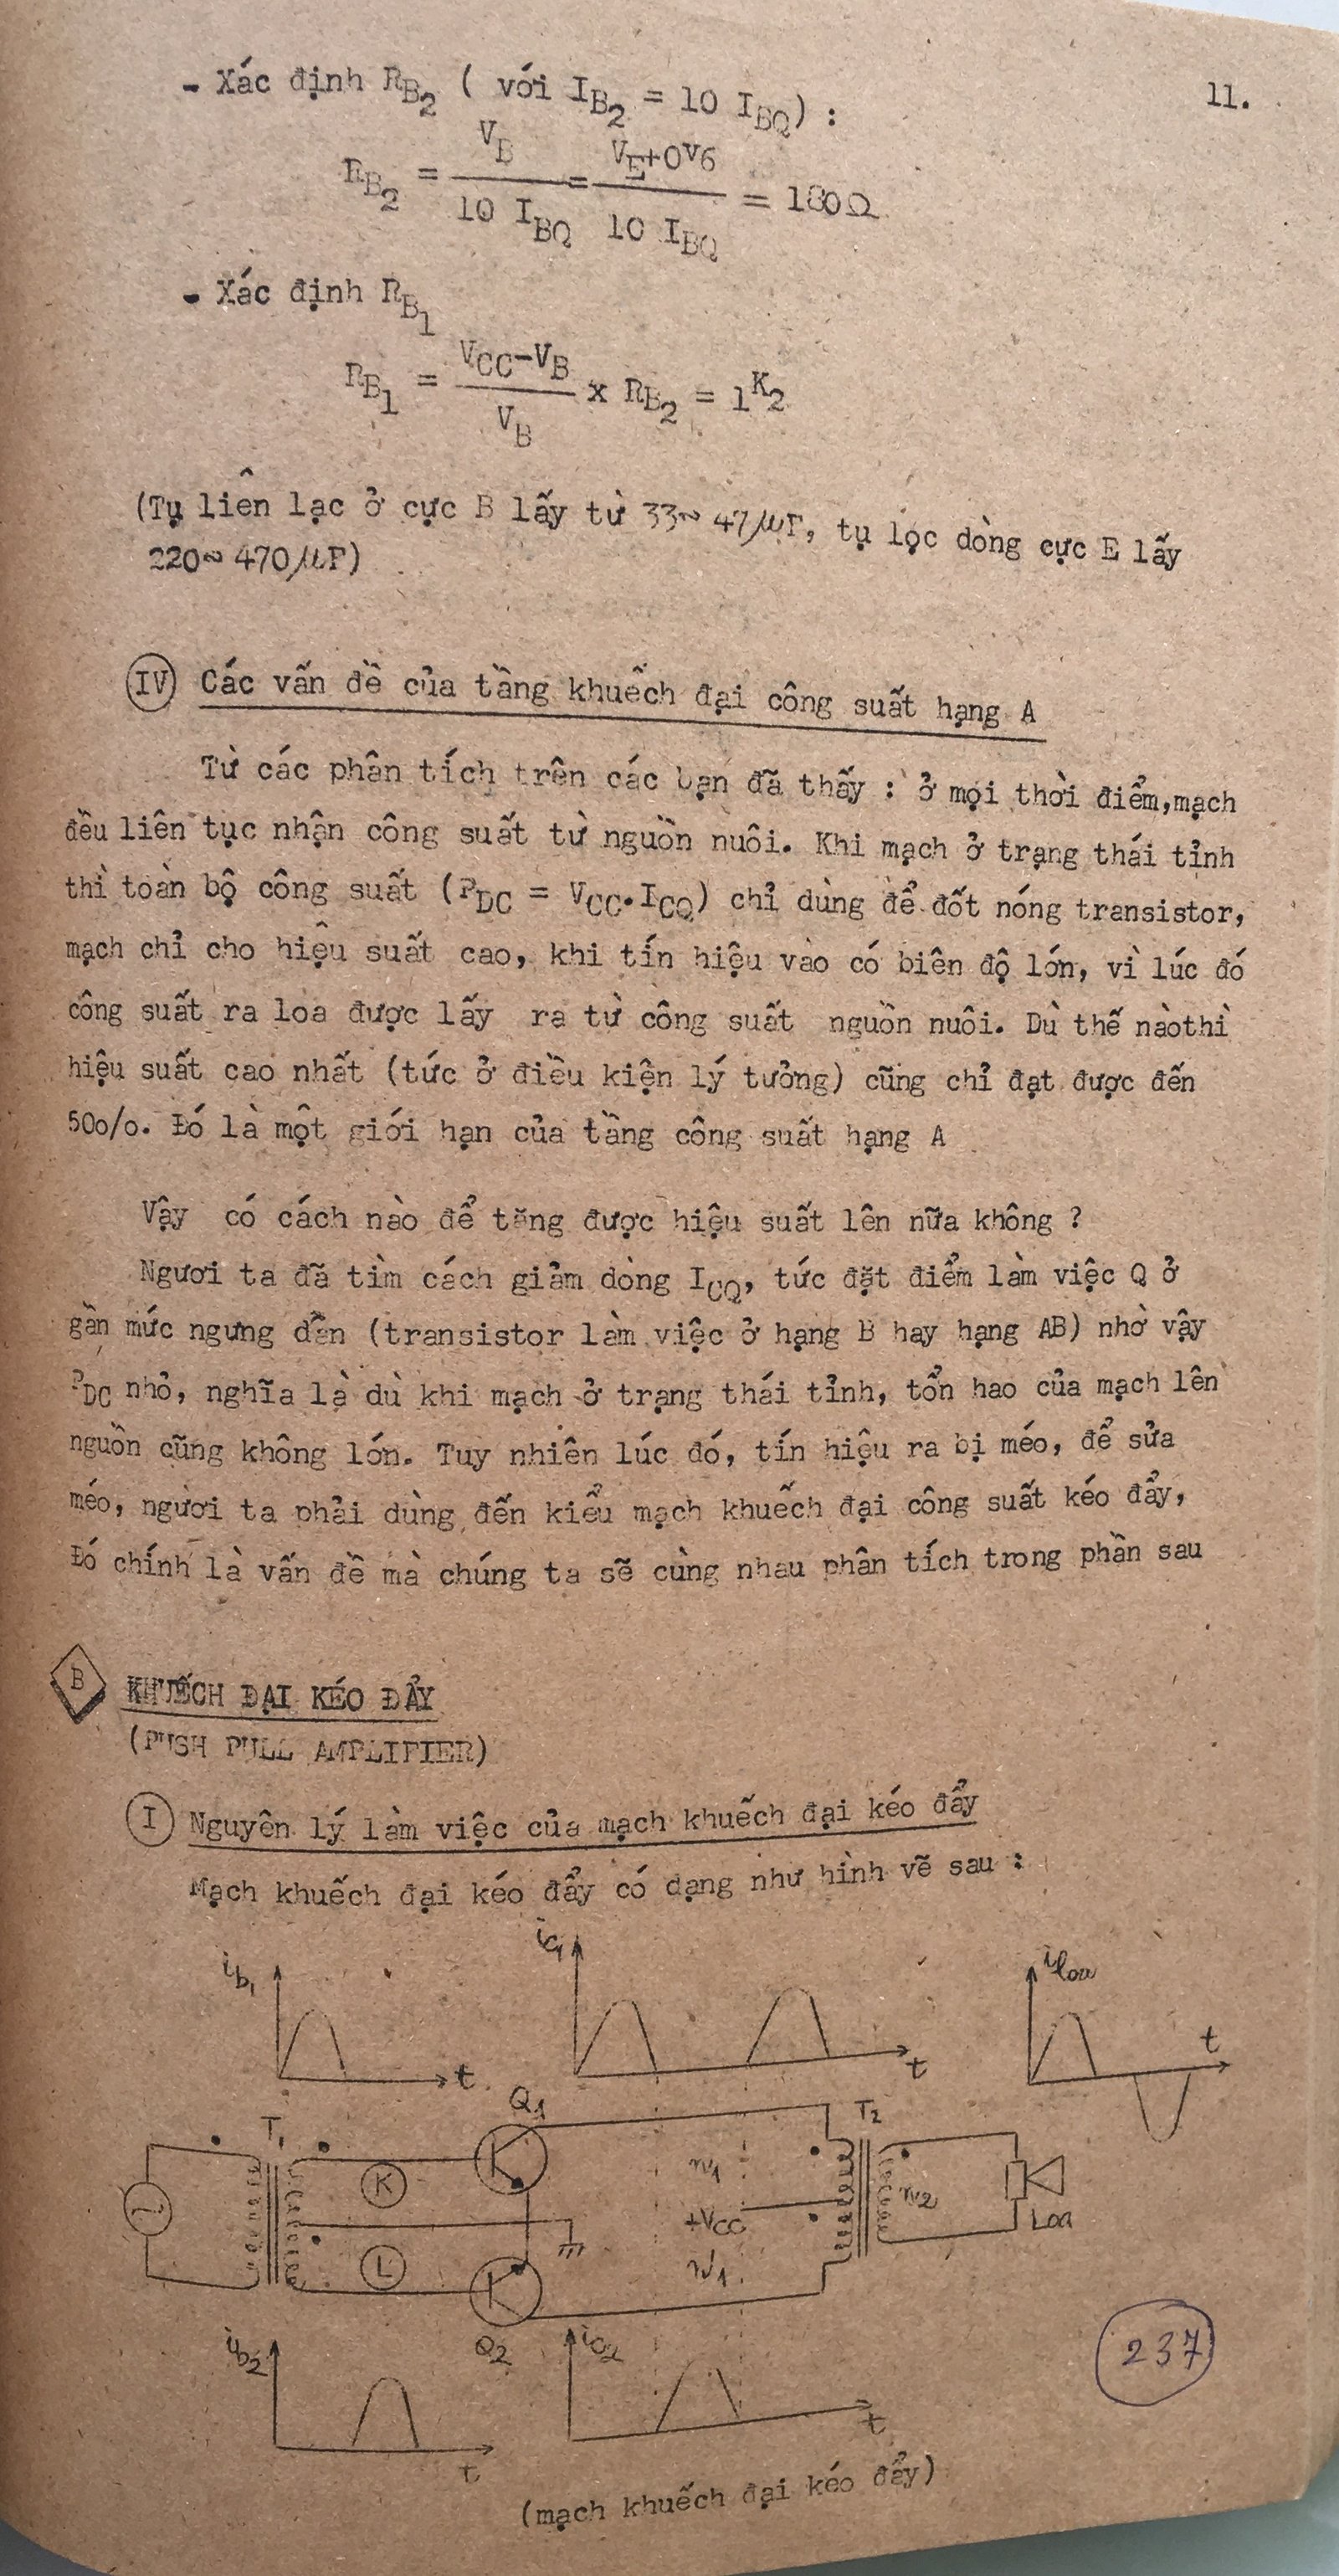 11.
- Xác định RB2 ( với IB2 = 10 IBQ) :
RB2 = VB / 10 IBQ = VE+0V6 / 10 IBQ = 180Ω
- Xác định RB1
RB1 = VCC-VB / VB x RB2 = 1K2
(Tụ liên lạc ở cực B lấy từ 33~47μF, tụ lọc dòng cực E lấy
220~470μF)
IV Các vấn đề của tầng khuếch đại công suất hạng A
Từ các phân tích trên các bạn đã thấy : ở mọi thời điểm,mạch
đều liên tục nhận công suất từ nguồn nuôi. Khi mạch ở trạng thái tỉnh
thì toàn bộ công suất (PDC = VCC.ICQ) chỉ dùng để đốt nóng transistor,
mạch chỉ cho hiệu suất cao, khi tín hiệu vào có biên độ lớn, vì lúc đó
công suất ra loa được lấy ra từ công suất nguồn nuôi. Dù thế nàothì
hiệu suất cao nhất (tức ở điều kiện lý tưởng) cũng chỉ đạt được đến
50o/o. Đó là một giới hạn của tầng công suất hạng A
Vậy có cách nào để tăng được hiệu suất lên nữa không ?
Người ta đã tìm cách giảm dòng ICQ, tức đặt điểm làm việc Q ở
gần mức ngưng dẫn (transistor làm việc ở hạng B hay hạng AB) nhờ vậy
PDC nhỏ, nghĩa là dù khi mạch ở trạng thái tỉnh, tổn hao của mạch lên
nguồn cũng không lớn. Tuy nhiên lúc đó, tín hiệu ra bị méo, để sửa
méo, người ta phải dùng đến kiểu mạch khuếch đại công suất kéo đẩy,
Đó chính là vấn đề mà chúng ta sẽ cùng nhau phân tích trong phần sau
B KHUẾCH ĐẠI KÉO ĐẨY
(PUSH PULL AMPLIFIER)
I Nguyên lý làm việc của mạch khuếch đại kéo đẩy
Mạch khuếch đại kéo đẩy có dạng như hình vẽ sau :
ib1 t
ic1 t
iloa t
T1 Q1 T2
K n1 n2
+VCC Loa
L n1
Q2
ib2 t
ic2 t
237
(mạch khuếch đại kéo đẩy)